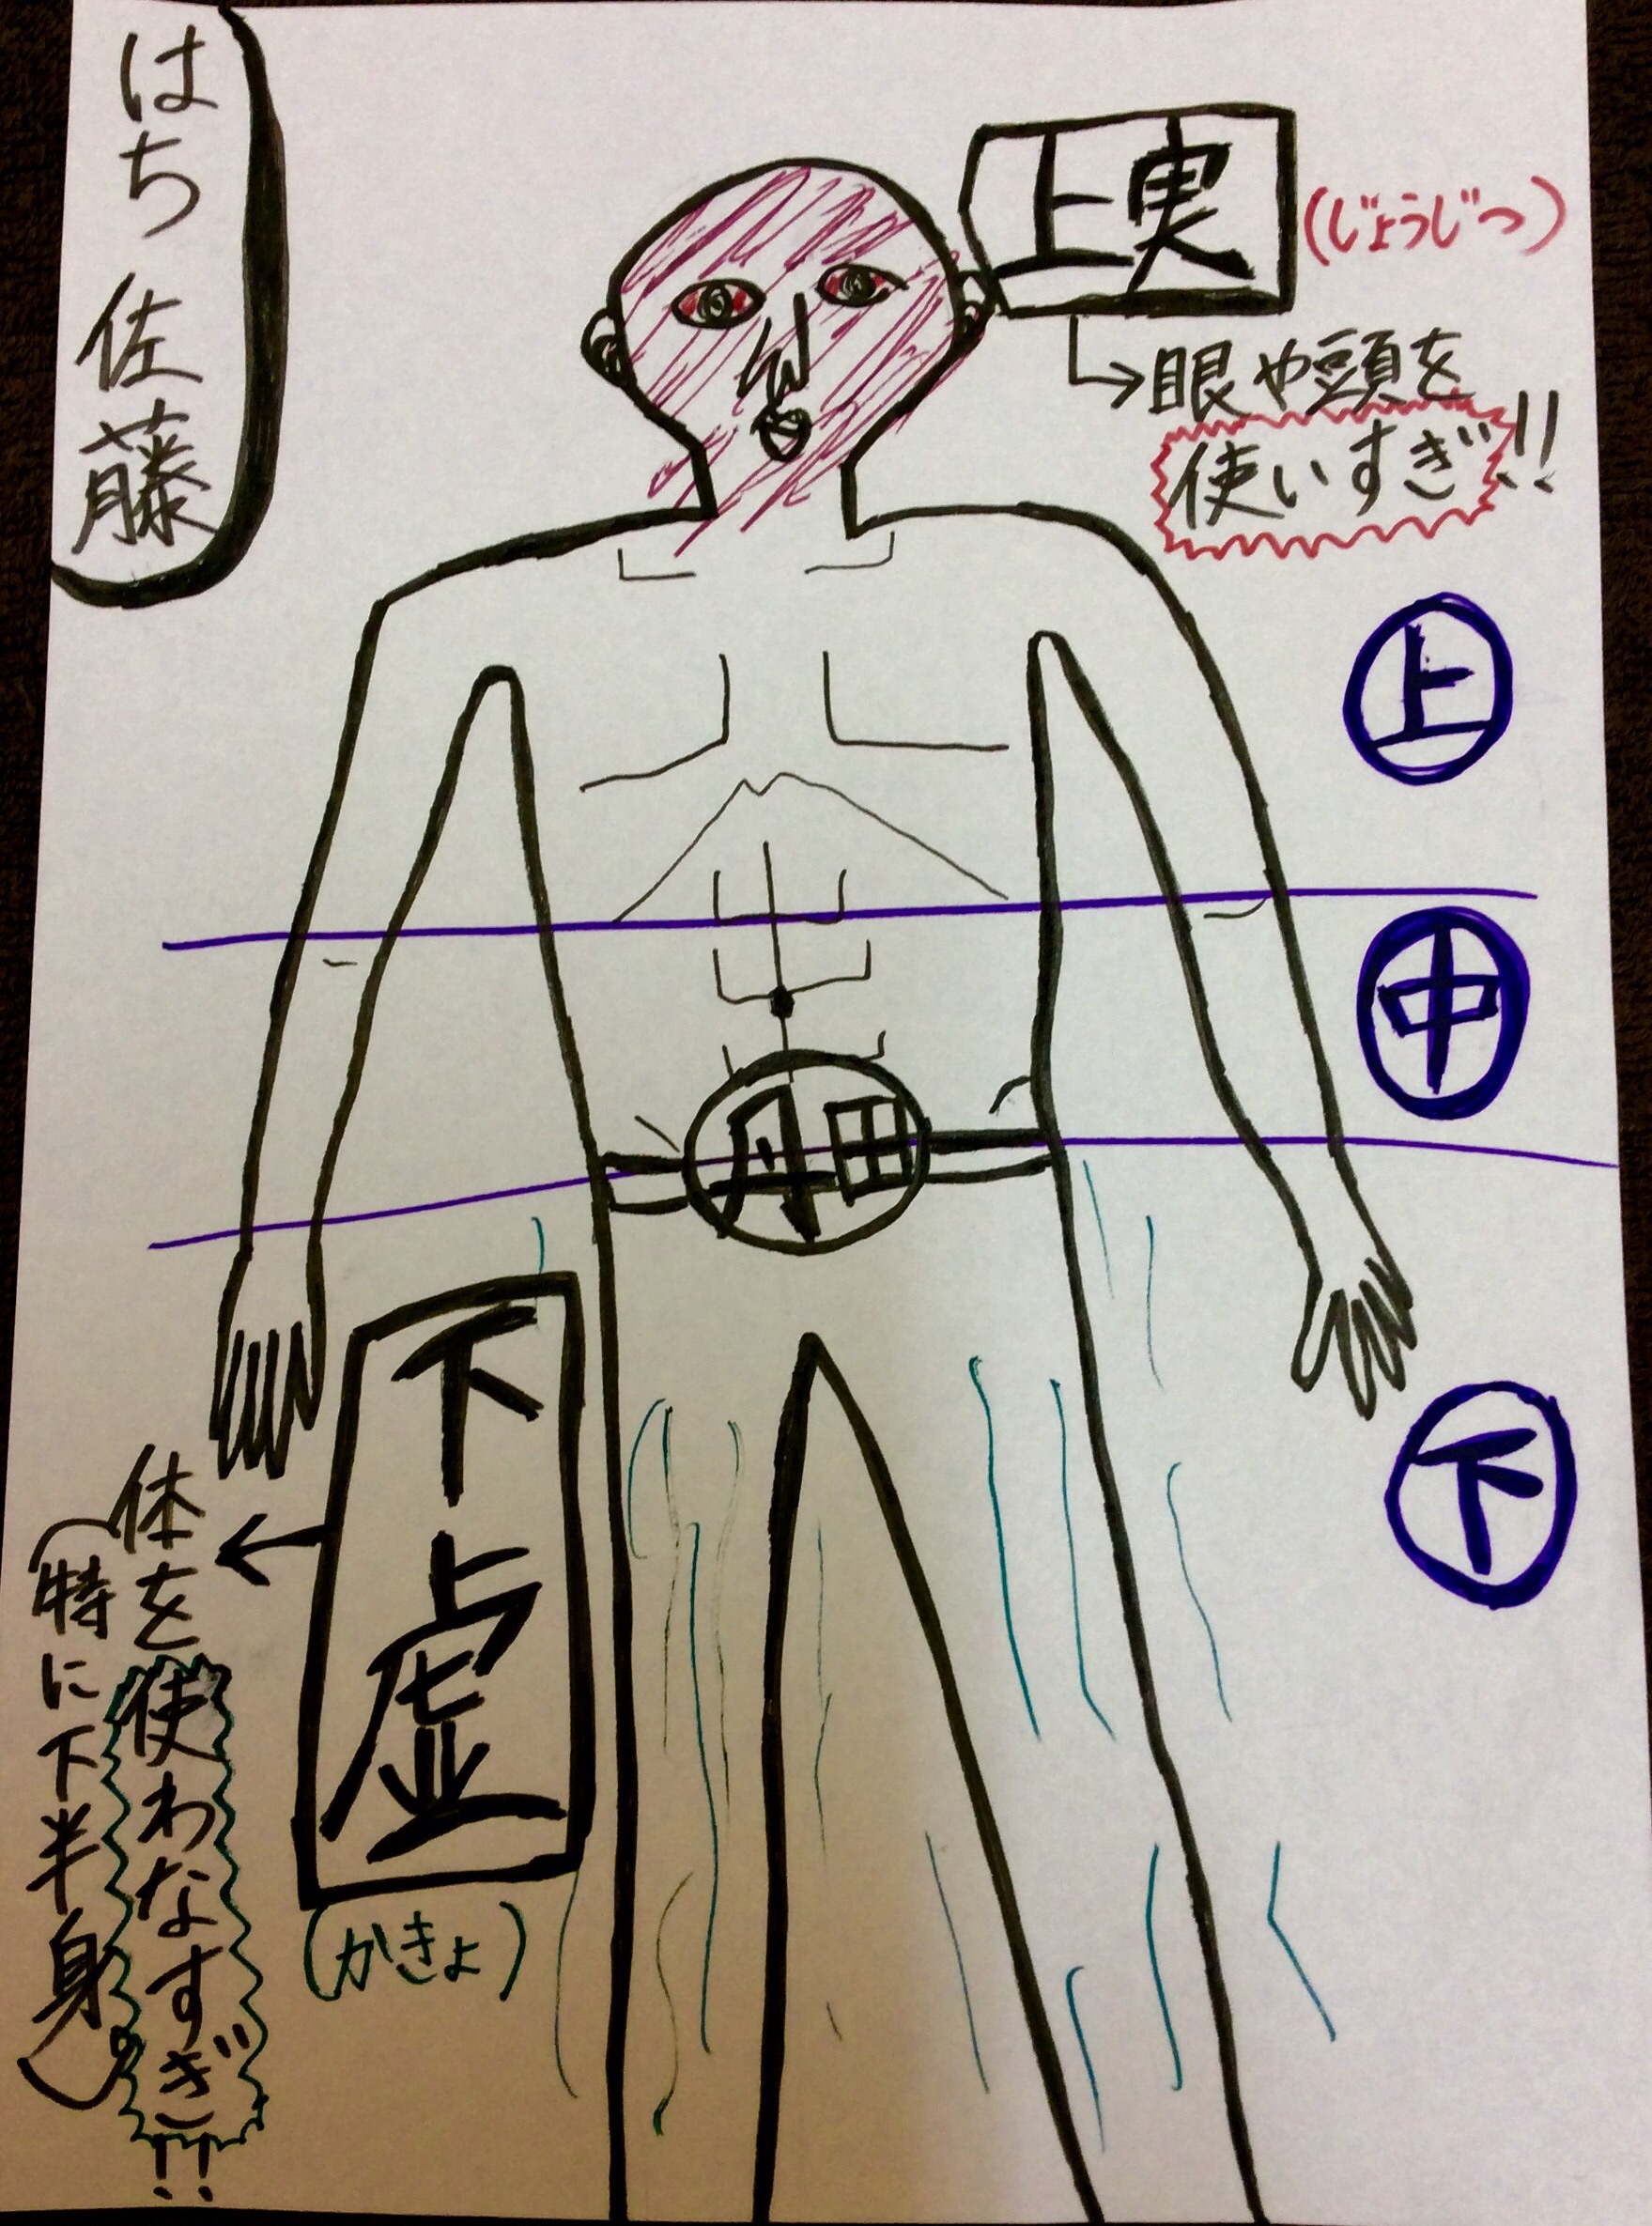 はち 佐藤
上実
(じょうじつ)
眼や頭を
使いすぎ!!
上
中
丹田
下
下虚
(かきょ)
体を使わなすぎ!!
(特に下半身)